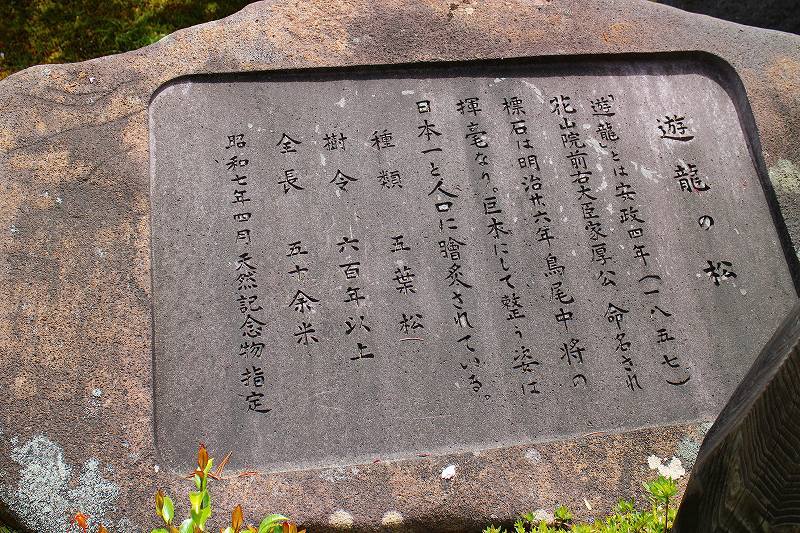 遊龍の松
「遊龍」とは安政四年(一八五七)
花山院前右大臣家厚公 命名され
標石は明治廿六年鳥尾中将の
揮毫なり。巨木にして整う姿は
日本一と人口に膾炙されている。
種類 五葉松
樹令 六百年以上
全長 五十余米
昭和七年四月天然記念物指定